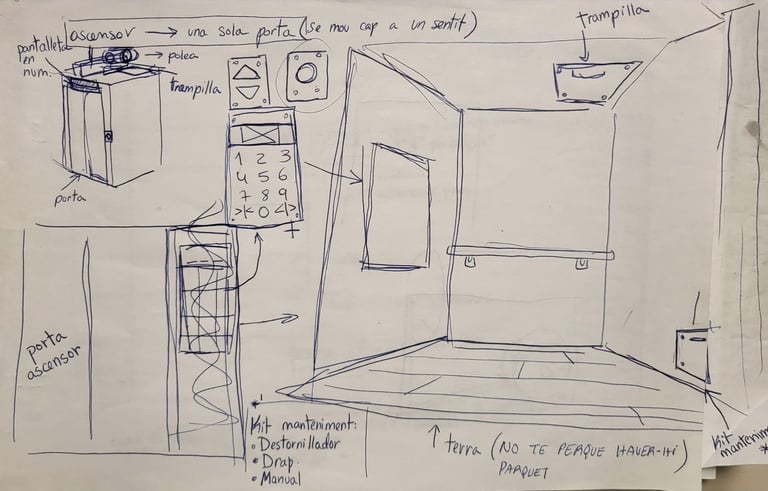 ascensor → una sola porta (se mou cap a un sentit)
pantalleta
en
num.
polea
trampilla
porta
1 2 3
4 5 6
7 8 9
>|< 0 <|>
trampilla
porta
ascensor
* Kit manteniment:
• Destornillador
• Drap.
• Manual
terra (NO TE PERQUE HAVER-HI
PARQUET)
Kit
mantenim
*